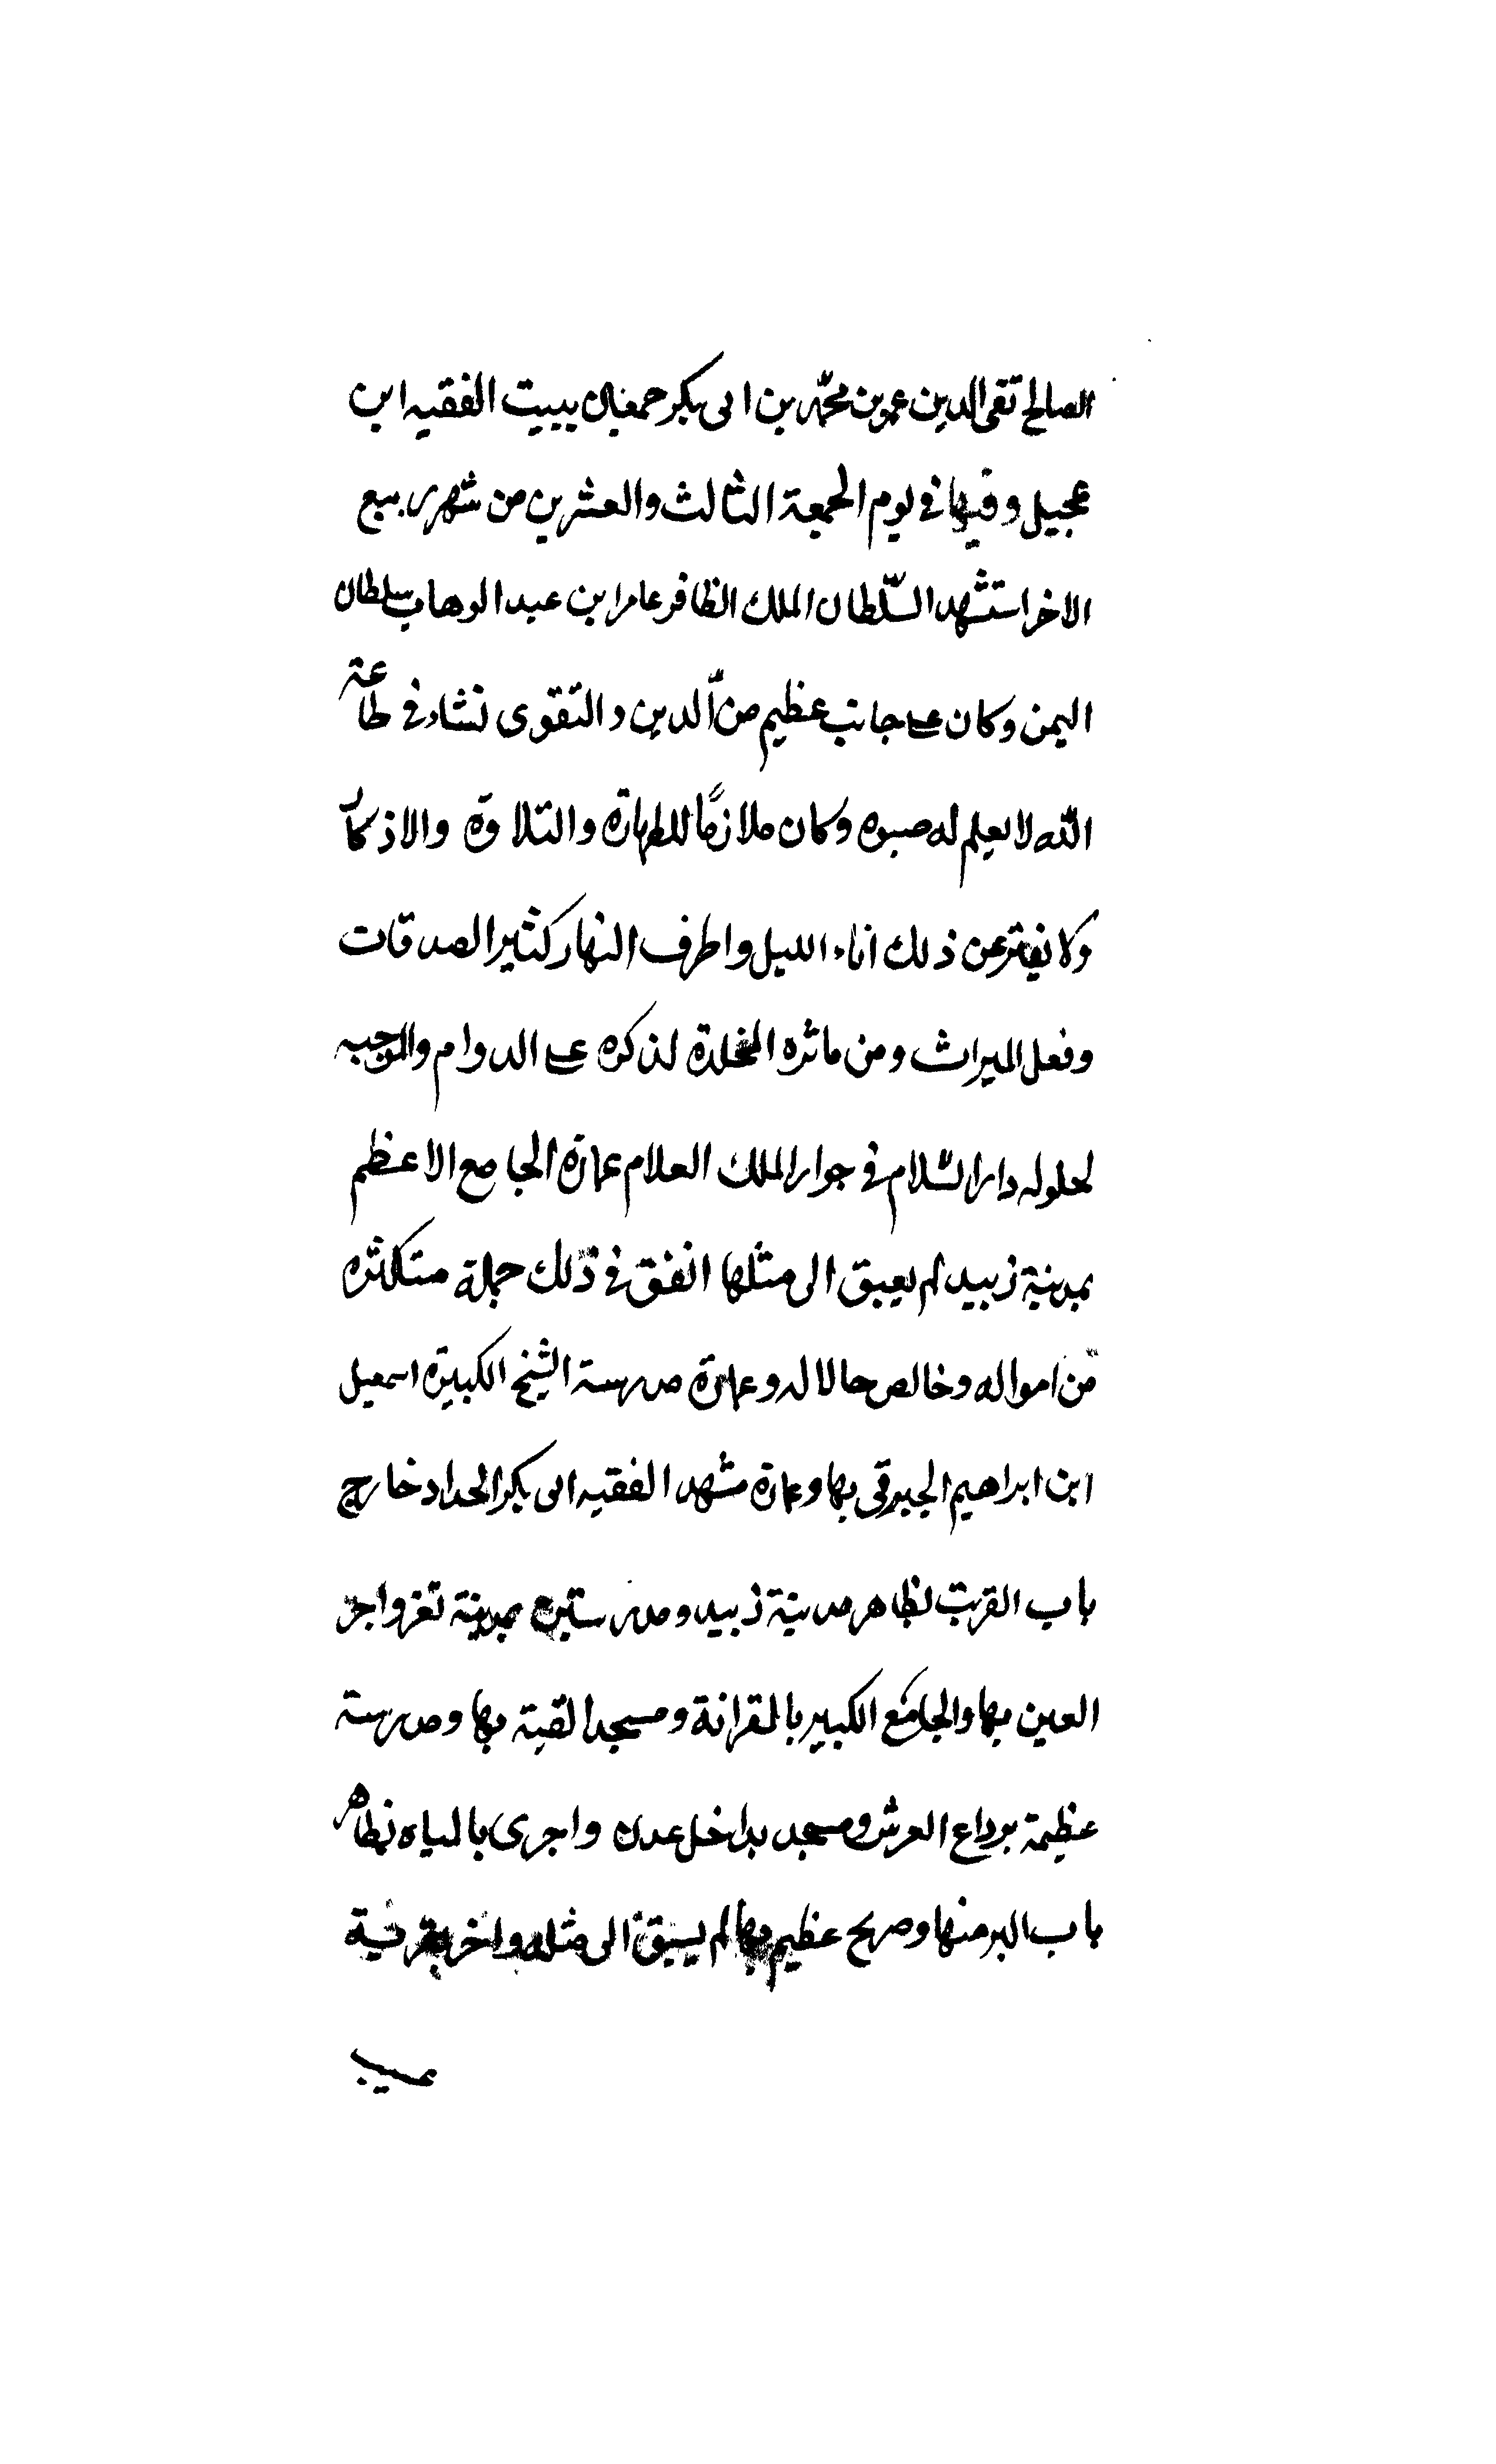 الصالح تقى الدين عمر بن محمّد بن ابى بكر جمعان ببيت الفقيه ابن
عجيل وفيها فى يوم الجمعة الثالث والعشرين من شهر ربيع
الاخر استشهد السّلطان الملك الظافر عامر ابن عبد الوهاب سلطان
اليمن وكان على جانب عظيم من الدين والتقوى نشاء فى طاعة
الله لا يعلم له صبوه وكان ملازمًا للطهارة والتلاوة والاذكار
ولا يفتر عن ذلك اناء الليل واطرف النهار كثير الصدقات
وفعل الميراث ومن ماثره المخلدة لذكره على الدوام والموجبه
لحلوله دار السّلام فى جوار الملك العلام عمارة الجامع الاعظم
بمدينة زبيد لم يعبق الى مثلها انفق فى ذلك جملة متكاثره
من امواله وخالص حالاله وعمارة مدرسة الشيخ الكبيرة اسمعيل
ابن ابراهيم الجبرقى بها وعمارة مشهد الفقيه ابى بكر الحداد خارج
باب القرتب نظاهر مدينة زبيد ومدرستين بمدينة تعز واجر
العين بها والجامع الكبير بالمقرانة ومسجد القبة بها ومدرسة
عظيمة برداع العرش ومسجد بداخل عدن واجرى بالمياه نظاهر
باب البر منها وصريح عظيم بها لم يسبق الى مثله واخر بقرية